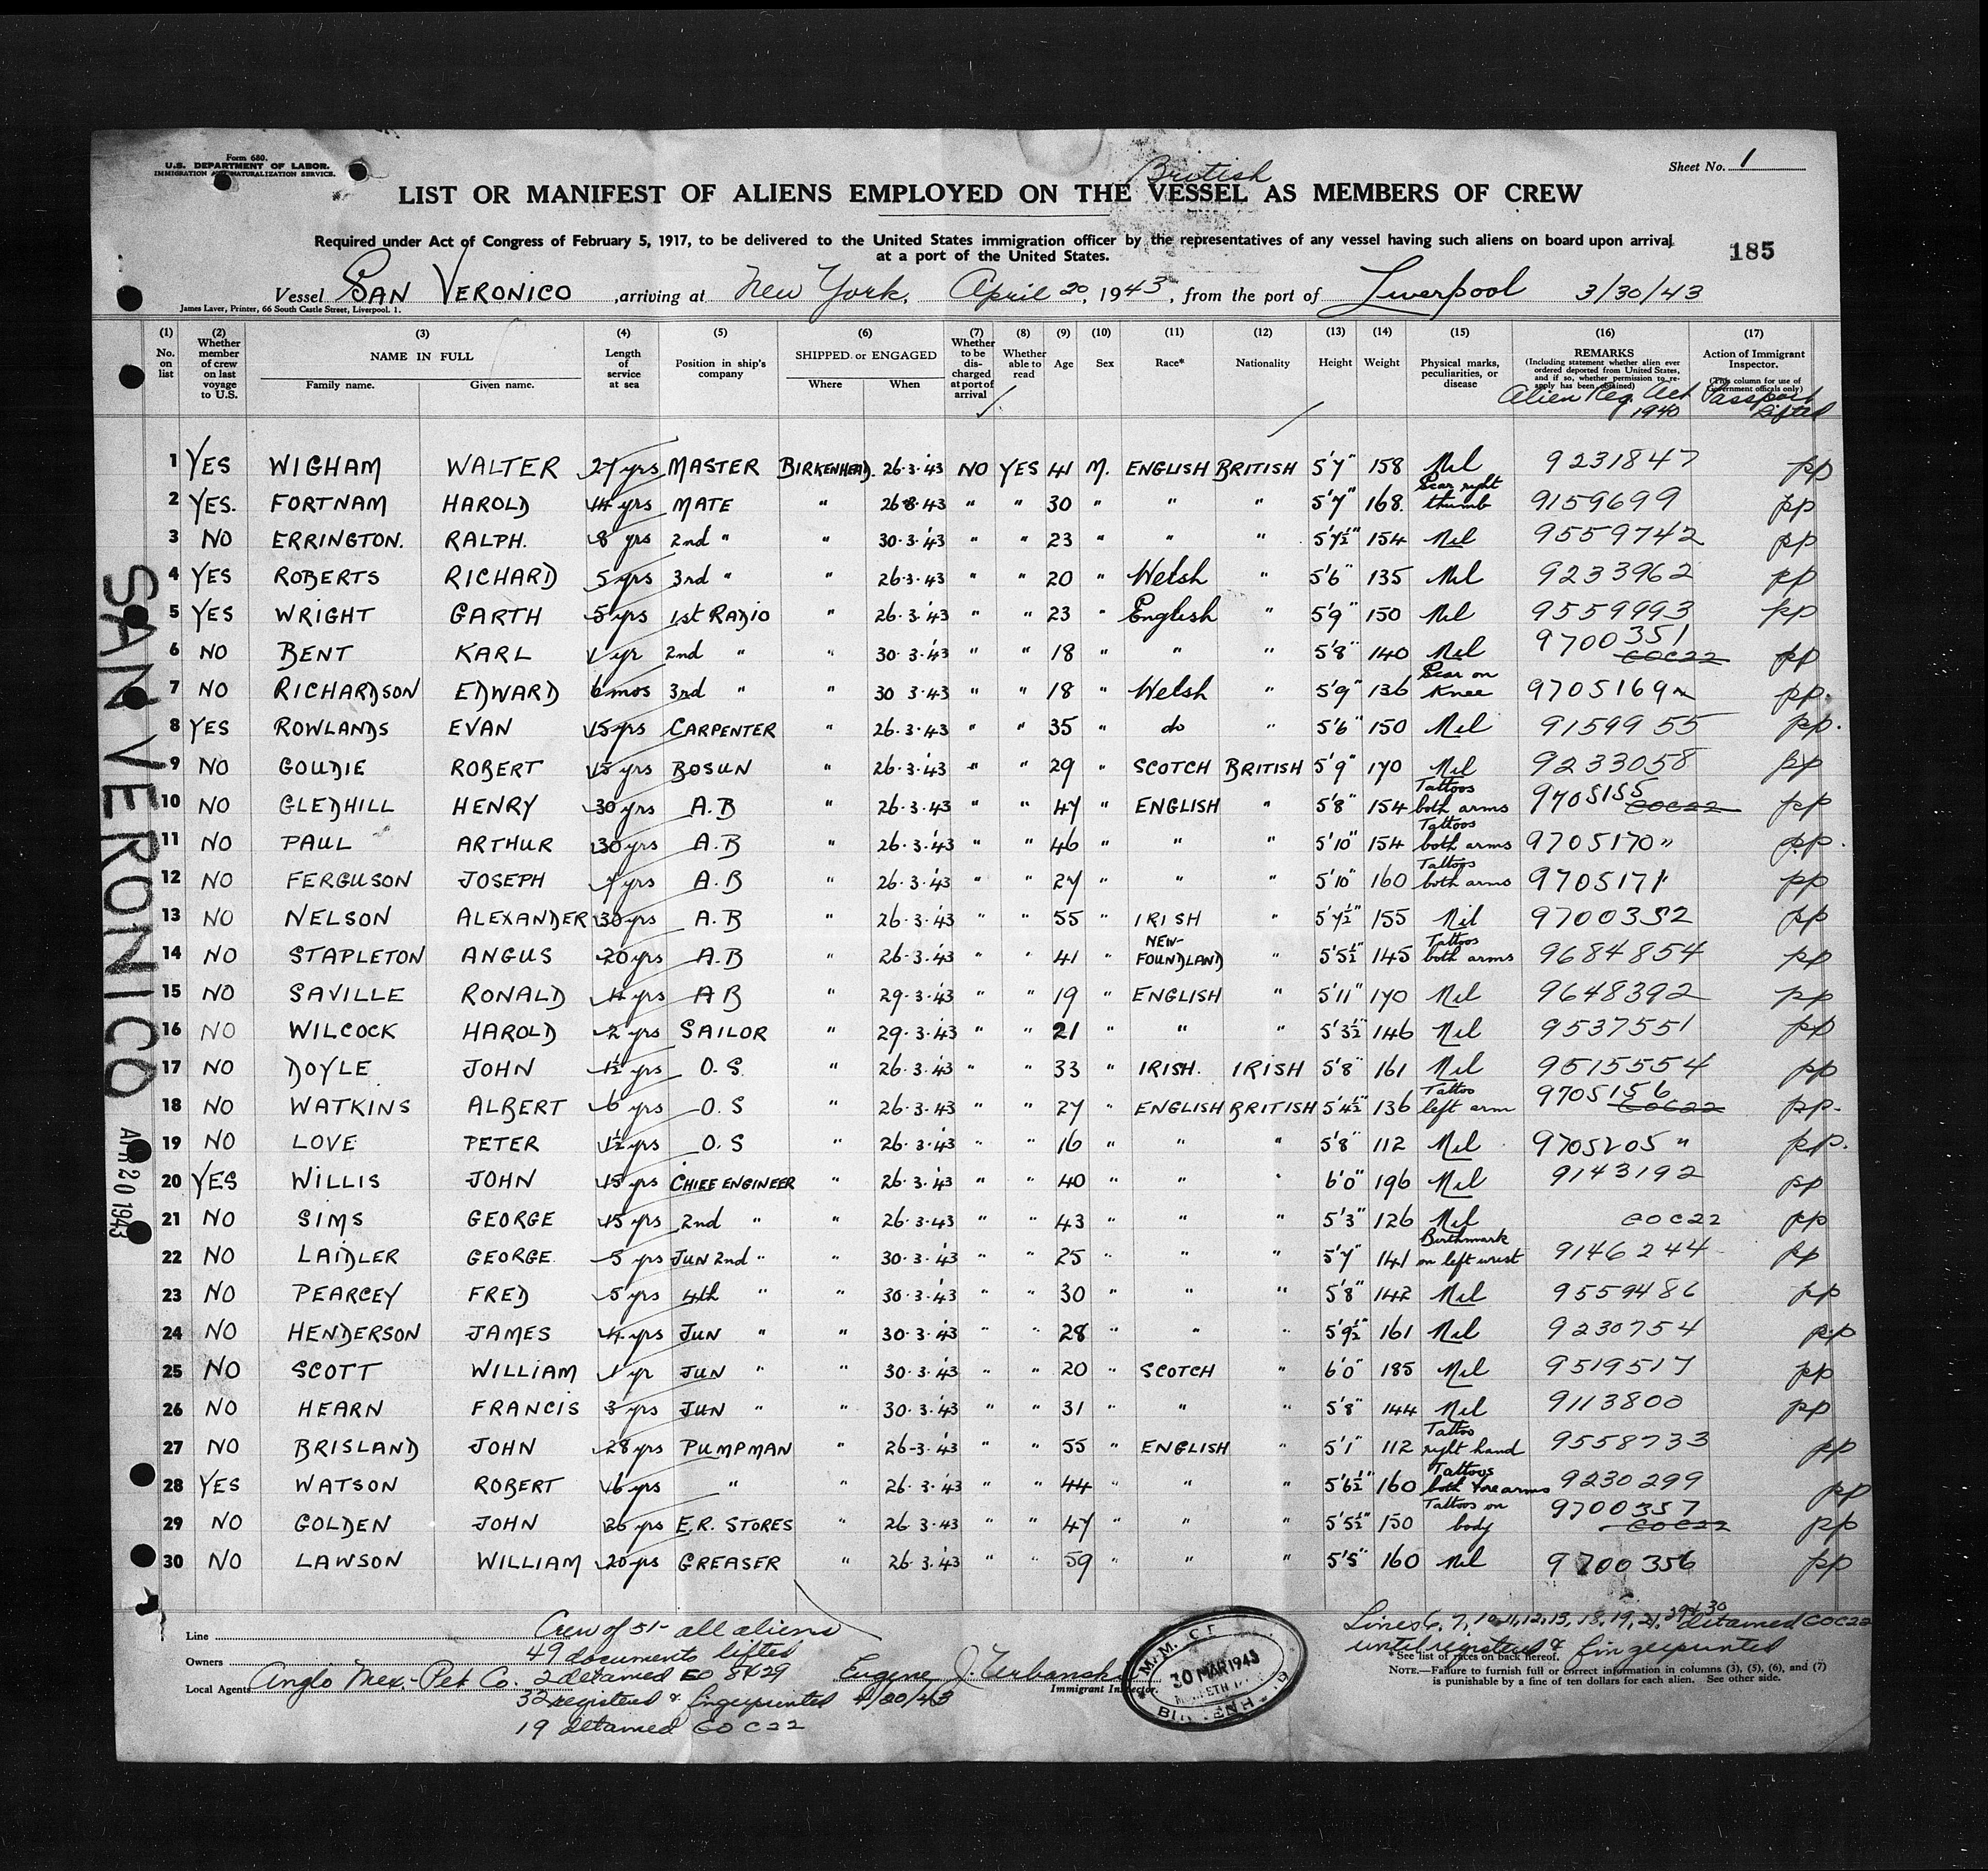 Form 680.
U.S. DEPARTMENT OF LABOR.
IMMIGRATION AND NATURALIZATION SERVICE.
Sheet No. 1
British
LIST OR MANIFEST OF ALIENS EMPLOYED ON THE VESSEL AS MEMBERS OF CREW
Required under Act of Congress of February 5, 1917, to be delivered to the United States immigration officer by the representatives of any vessel having such aliens on board upon arrival
at a port of the United States.
185
Vessel SAN VERONICO, arriving at New York, April 20, 1943, from the port of Liverpool 3/30/43
James Laver, Printer, 66 South Castle Street, Liverpool. 1.
(1) No. on list (2) Whether member of crew on last voyage to U.S. (3) NAME IN FULL Family name. Given name. (4) Length of service at sea (5) Position in ship's company (6) SHIPPED or ENGAGED Where When (7) Whether to be discharged at port of arrival (8) Whether able to read (9) Age (10) Sex (11) Race* (12) Nationality (13) Height (14) Weight (15) Physical marks, peculiarities, or disease (16) REMARKS (Including statement whether alien ever ordered deported from United States, and if so, whether permission to re-apply has been obtained) (17) Action of Immigrant Inspector. (This column for use of Government officials only)
Alien Reg. Act 1940 Passport lifted
1 YES WIGHAM WALTER 27 yrs MASTER BIRKENHEAD. 26·3·43 NO YES 41 M. ENGLISH BRITISH 5'7" 158 Nil 9231847 pp
2 YES. FORTNAM HAROLD 14 yrs MATE " 26·3·43 " " 30 " " " 5'7" 168. Scar right thumb 9159699 pp
3 NO ERRINGTON. RALPH. 8 yrs 2nd " " 30·3·43 " " 23 " " " 5'7½" 154 Nil 9559742 pp
4 YES ROBERTS RICHARD 5 yrs 3rd " " 26·3·43 " " 20 " Welsh " 5'6" 135 Nil 9233962 pp
5 YES WRIGHT GARTH 5 yrs 1st RADIO " 26·3·43 " " 23 " English " 5'9" 150 Nil 9559993 pp
6 NO BENT KARL 1 yr 2nd " " 30·3·43 " " 18 " " " 5'8" 140 Nil 9700351 GOC22 pp
7 NO RICHARDSON EDWARD 6 mos 3rd " " 30 3·43 " " 18 " Welsh " 5'9" 136 Scar on Knee 9705169 " pp.
8 YES ROWLANDS EVAN 15 yrs CARPENTER " 26·3·43 " " 35 " do " 5'6" 150 Nil 9159955 pp.
9 NO GOUDIE ROBERT 15 yrs BOSUN " 26·3·43 " " 29 " SCOTCH BRITISH 5'9" 170 Nil 9233058 pp
10 NO GLEDHILL HENRY 30 yrs A.B " 26·3·43 " " 47 " ENGLISH " 5'8" 154 Tattoos both arms 9705155 GOC22 pp
11 NO PAUL ARTHUR 30 yrs A.B " 26·3·43 " " 46 " " " 5'10" 154 Tattoos both arms 9705170 " pp.
12 NO FERGUSON JOSEPH 7 yrs A.B " 26·3·43 " " 27 " " " 5'10" 160 Tattoos both arms 9705171 " pp
13 NO NELSON ALEXANDER 30 yrs A.B " 26·3·43 " " 55 " IRISH " 5'7½" 155 Nil 9700352 pp
14 NO STAPLETON ANGUS 20 yrs A.B " 26·3·43 " " 41 " NEW-FOUNDLAND " 5'5½" 145 Tattoos both arms 9684854 pp
15 NO SAVILLE RONALD 4 yrs AB " 29·3·43 " " 19 " ENGLISH " 5'11" 170 Nil 9648392 pp
16 NO WILCOCK HAROLD 2 yrs SAILOR " 29·3·43 " " 21 " " " 5'3½" 146 Nil 9537551 pp
17 NO DOYLE JOHN 1½ yrs O.S. " 26·3·43 " " 33 " IRISH. IRISH 5'8" 161 Nil 9515554 pp
18 NO WATKINS ALBERT 6 yrs O.S " 26·3·43 " " 27 " ENGLISH BRITISH 5'4½" 136 Tattoo left arm 9705156 GOC22 pp.
19 NO LOVE PETER 1½ yrs O.S " 26·3·43 " " 16 " " " 5'8" 112 Nil 9705205 " pp.
20 YES WILLIS JOHN 15 yrs CHIEF ENGINEER " 26·3·43 " " 40 " " " 6'0" 196 Nil 9143192 pp
21 NO SIMS GEORGE 15 yrs 2nd " " 26·3·43 " " 43 " " " 5'3" 126 Nil GOC22 pp
22 NO LAIDLER GEORGE 5 yrs JUN 2nd " " 30·3·43 " " 25 " " " 5'7" 141 Birthmark on left wrist 9146244 pp
23 NO PEARCEY FRED 5 yrs 4th " " 30·3·43 " " 30 " " " 5'8" 142 Nil 9559486 pp
24 NO HENDERSON JAMES 4 yrs JUN " " 30·3·43 " " 28 " " " 5'9½" 161 Nil 9230754 pp
25 NO SCOTT WILLIAM 1 yr JUN " " 30·3·43 " " 20 " SCOTCH " 6'0" 185 Nil 9519517 pp
26 NO HEARN FRANCIS 3 yrs JUN " " 30·3·43 " " 31 " " " 5'8" 144 Nil 9113800 pp
27 NO BRISLAND JOHN 28 yrs PUMPMAN " 26·3·43 " " 55 " ENGLISH " 5'1" 112 Tattoo right hand 9558733 pp
28 YES WATSON ROBERT 16 yrs " " 26·3·43 " " 44 " " " 5'6½" 160 Tattoos both forearms 9230299 pp
29 NO GOLDEN JOHN 26 yrs E.R. STORES " 26 3·43 " " 47 " " " 5'5½" 150 Tattoos on body 9700357 GOC22 pp
30 NO LAWSON WILLIAM 20 yrs GREASER " 26 3·43 " " 59 " " " 5'5" 160 Nil 9700356 pp
SAN VERONICO APR 20 1943
Line
Owners
Local Agents Anglo Mex. Pet Co.
Crew of 51 - all aliens
49 documents lifted
2 detained EO 8429
32 registered & fingerprinted
19 detained GOC22
Eugene J. Urbanski
4/20/43
Immigrant Inspector.
30 MAR 1943
Lines 6, 7, 10, 11, 12, 13, 18, 19, 21, 29 & 30 detained GOC22
until registered & fingerprinted
*See list of races on back hereof.
NOTE.—Failure to furnish full or correct information in columns (3), (5), (6), and (7)
is punishable by a fine of ten dollars for each alien. See other side.